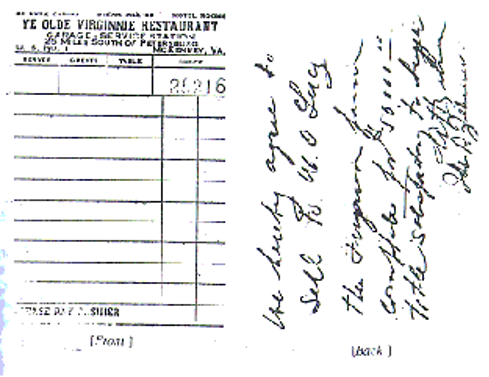 YE OLDE VIRGINNIE RESTAURANT
GARAGE, SERVICE STATION
25 MILES SOUTH OF PETERSBURG
U. S. NO. 1 MCKENNEY, VA.
SERVER GUESTS TABLE
25216
PLEASE PAY CASHIER
[Front]
We hereby agree to
sell to W. O Lucy
the Ferguson Farm
complete for $50000 00
title satisfactory to buyer
[Back]